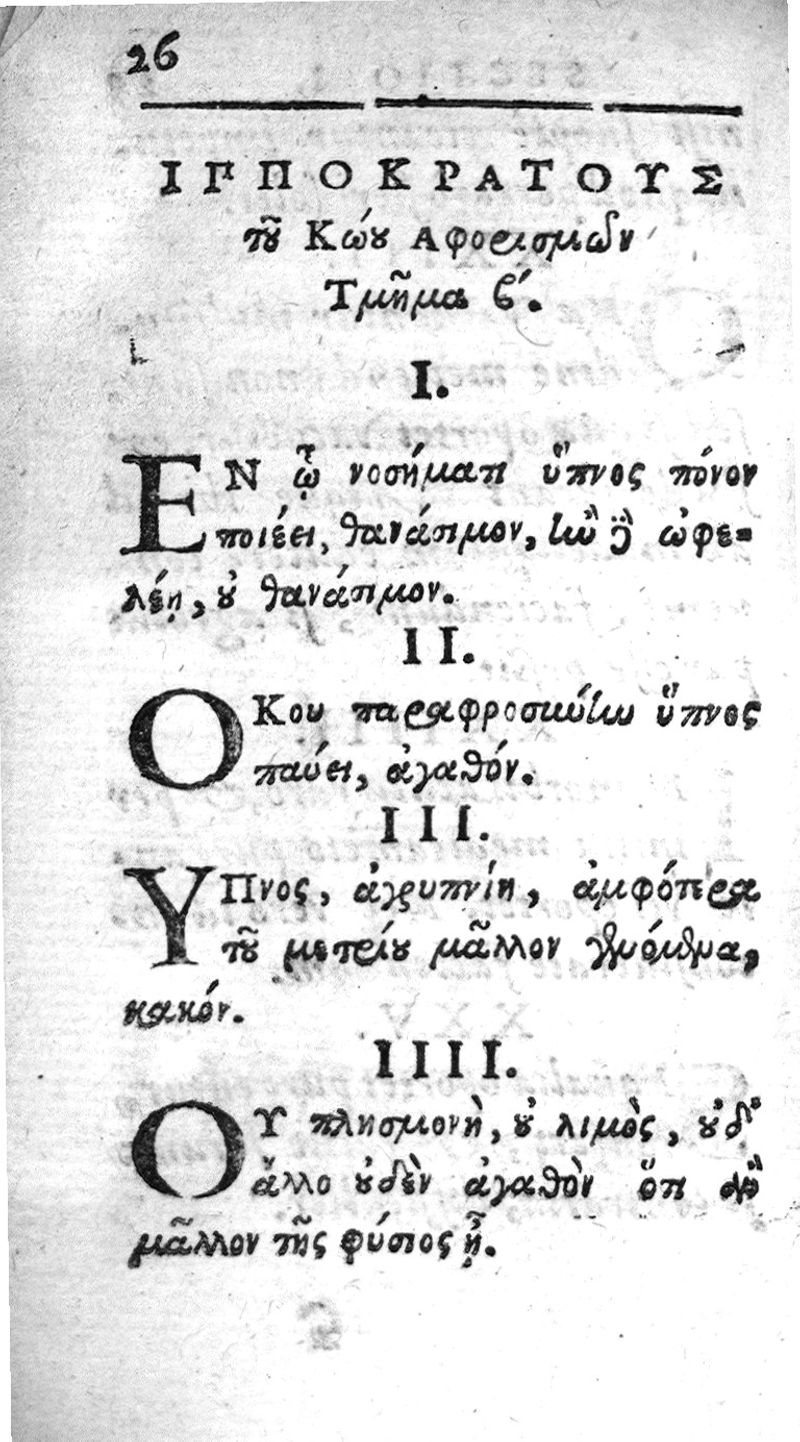 26
ΙΠΠΟΚΡΑΤΟΥΣ
τοῦ Κώου Αφορισμῶν
Τμῆμα ϐ΄.
I.
ΕΝ ᾧ νοσήματι ὕπνος πόνον
ποιέει, θανάσιμον, ἢν δὲ ὠφε-
λέῃ, οὐ θανάσιμον.
II.
ΟΚου παραφροσύνην ὕπνος
παύει, ἀγαθόν.
III.
ΥΠνος, ἀγρυπνίη, ἀμφότερα
τοῦ μετρίου μᾶλλον γενόμενα,
κακόν.
IIII.
ΟΥ πλησμονὴ, οὐ λιμὸς, οὐδ᾽
ἄλλο οὐδὲν ἀγαθὸν ὅτι ἂν
μᾶλλον τῆς φύσιος ᾖ.